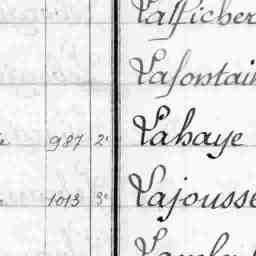 Lafficher
Lafontain
987 2e Lahaye
1013 3e Lajousse